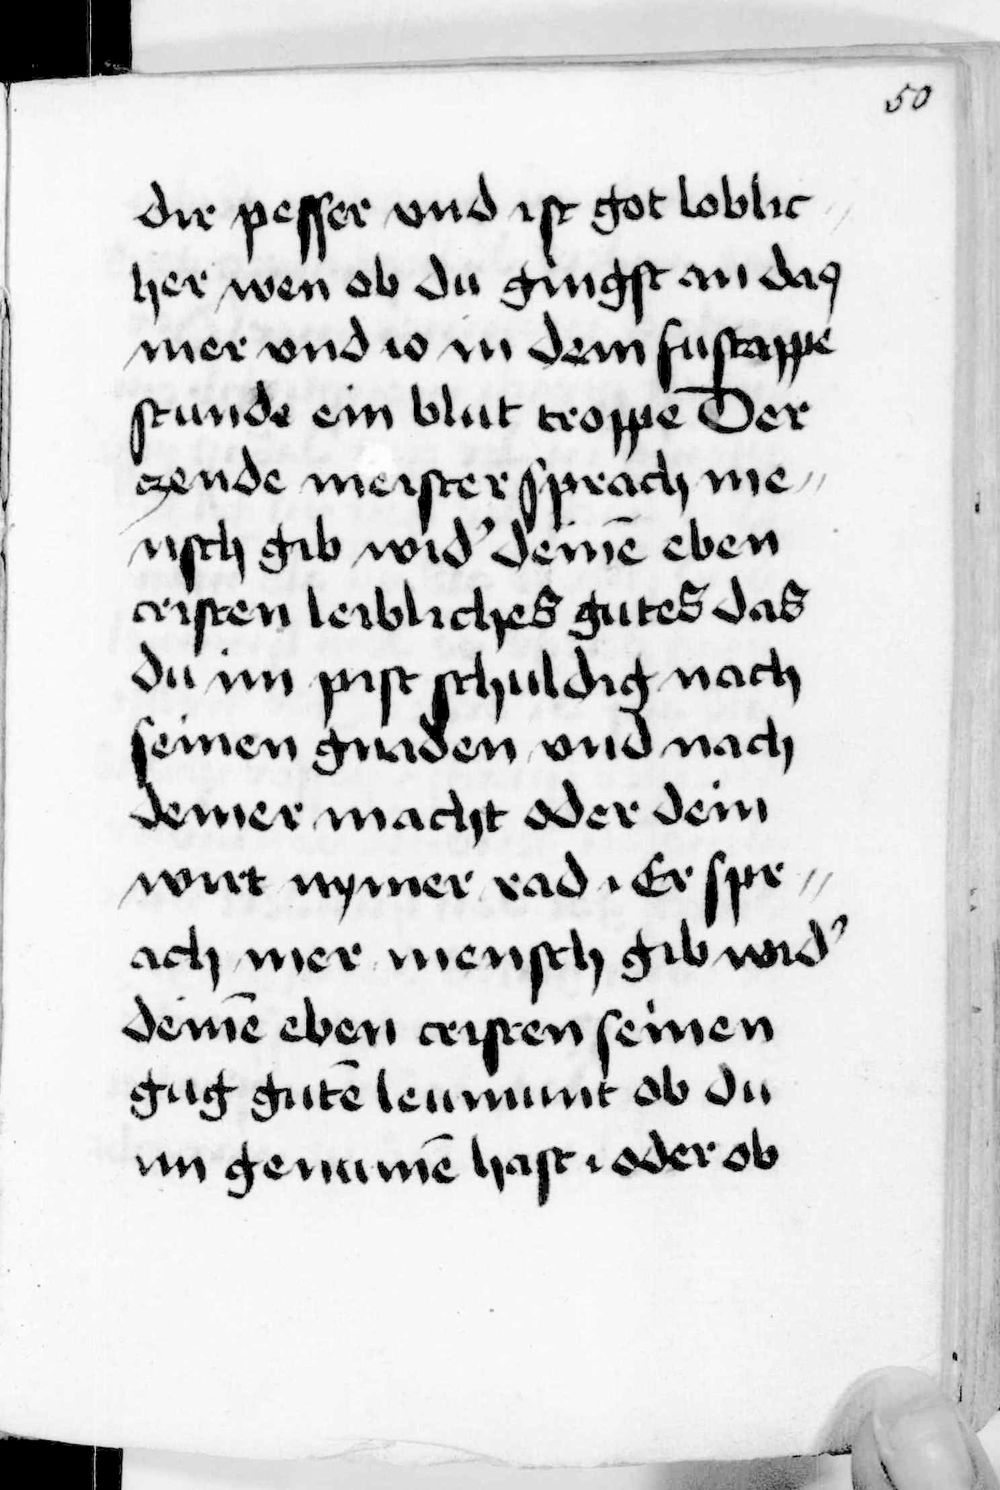 50
dir pesser vnd ist got loblic〃
her wen ob du gingst an das
mer vnd io in dem fustappē
stunde ein blut troppē Der
czende meister sprach me〃
nsch gib wid' deinē eben
cristen leibliches gutes das
du im pist schuldig nach
seinen gnaden vnd nach
deiner macht oder dein
wirt nymer rad · Er spr〃
ach mer mensch gib wid'
deinē eben cristen seinen
gug gutē leumunt ob du
im genumē hast · oder ob